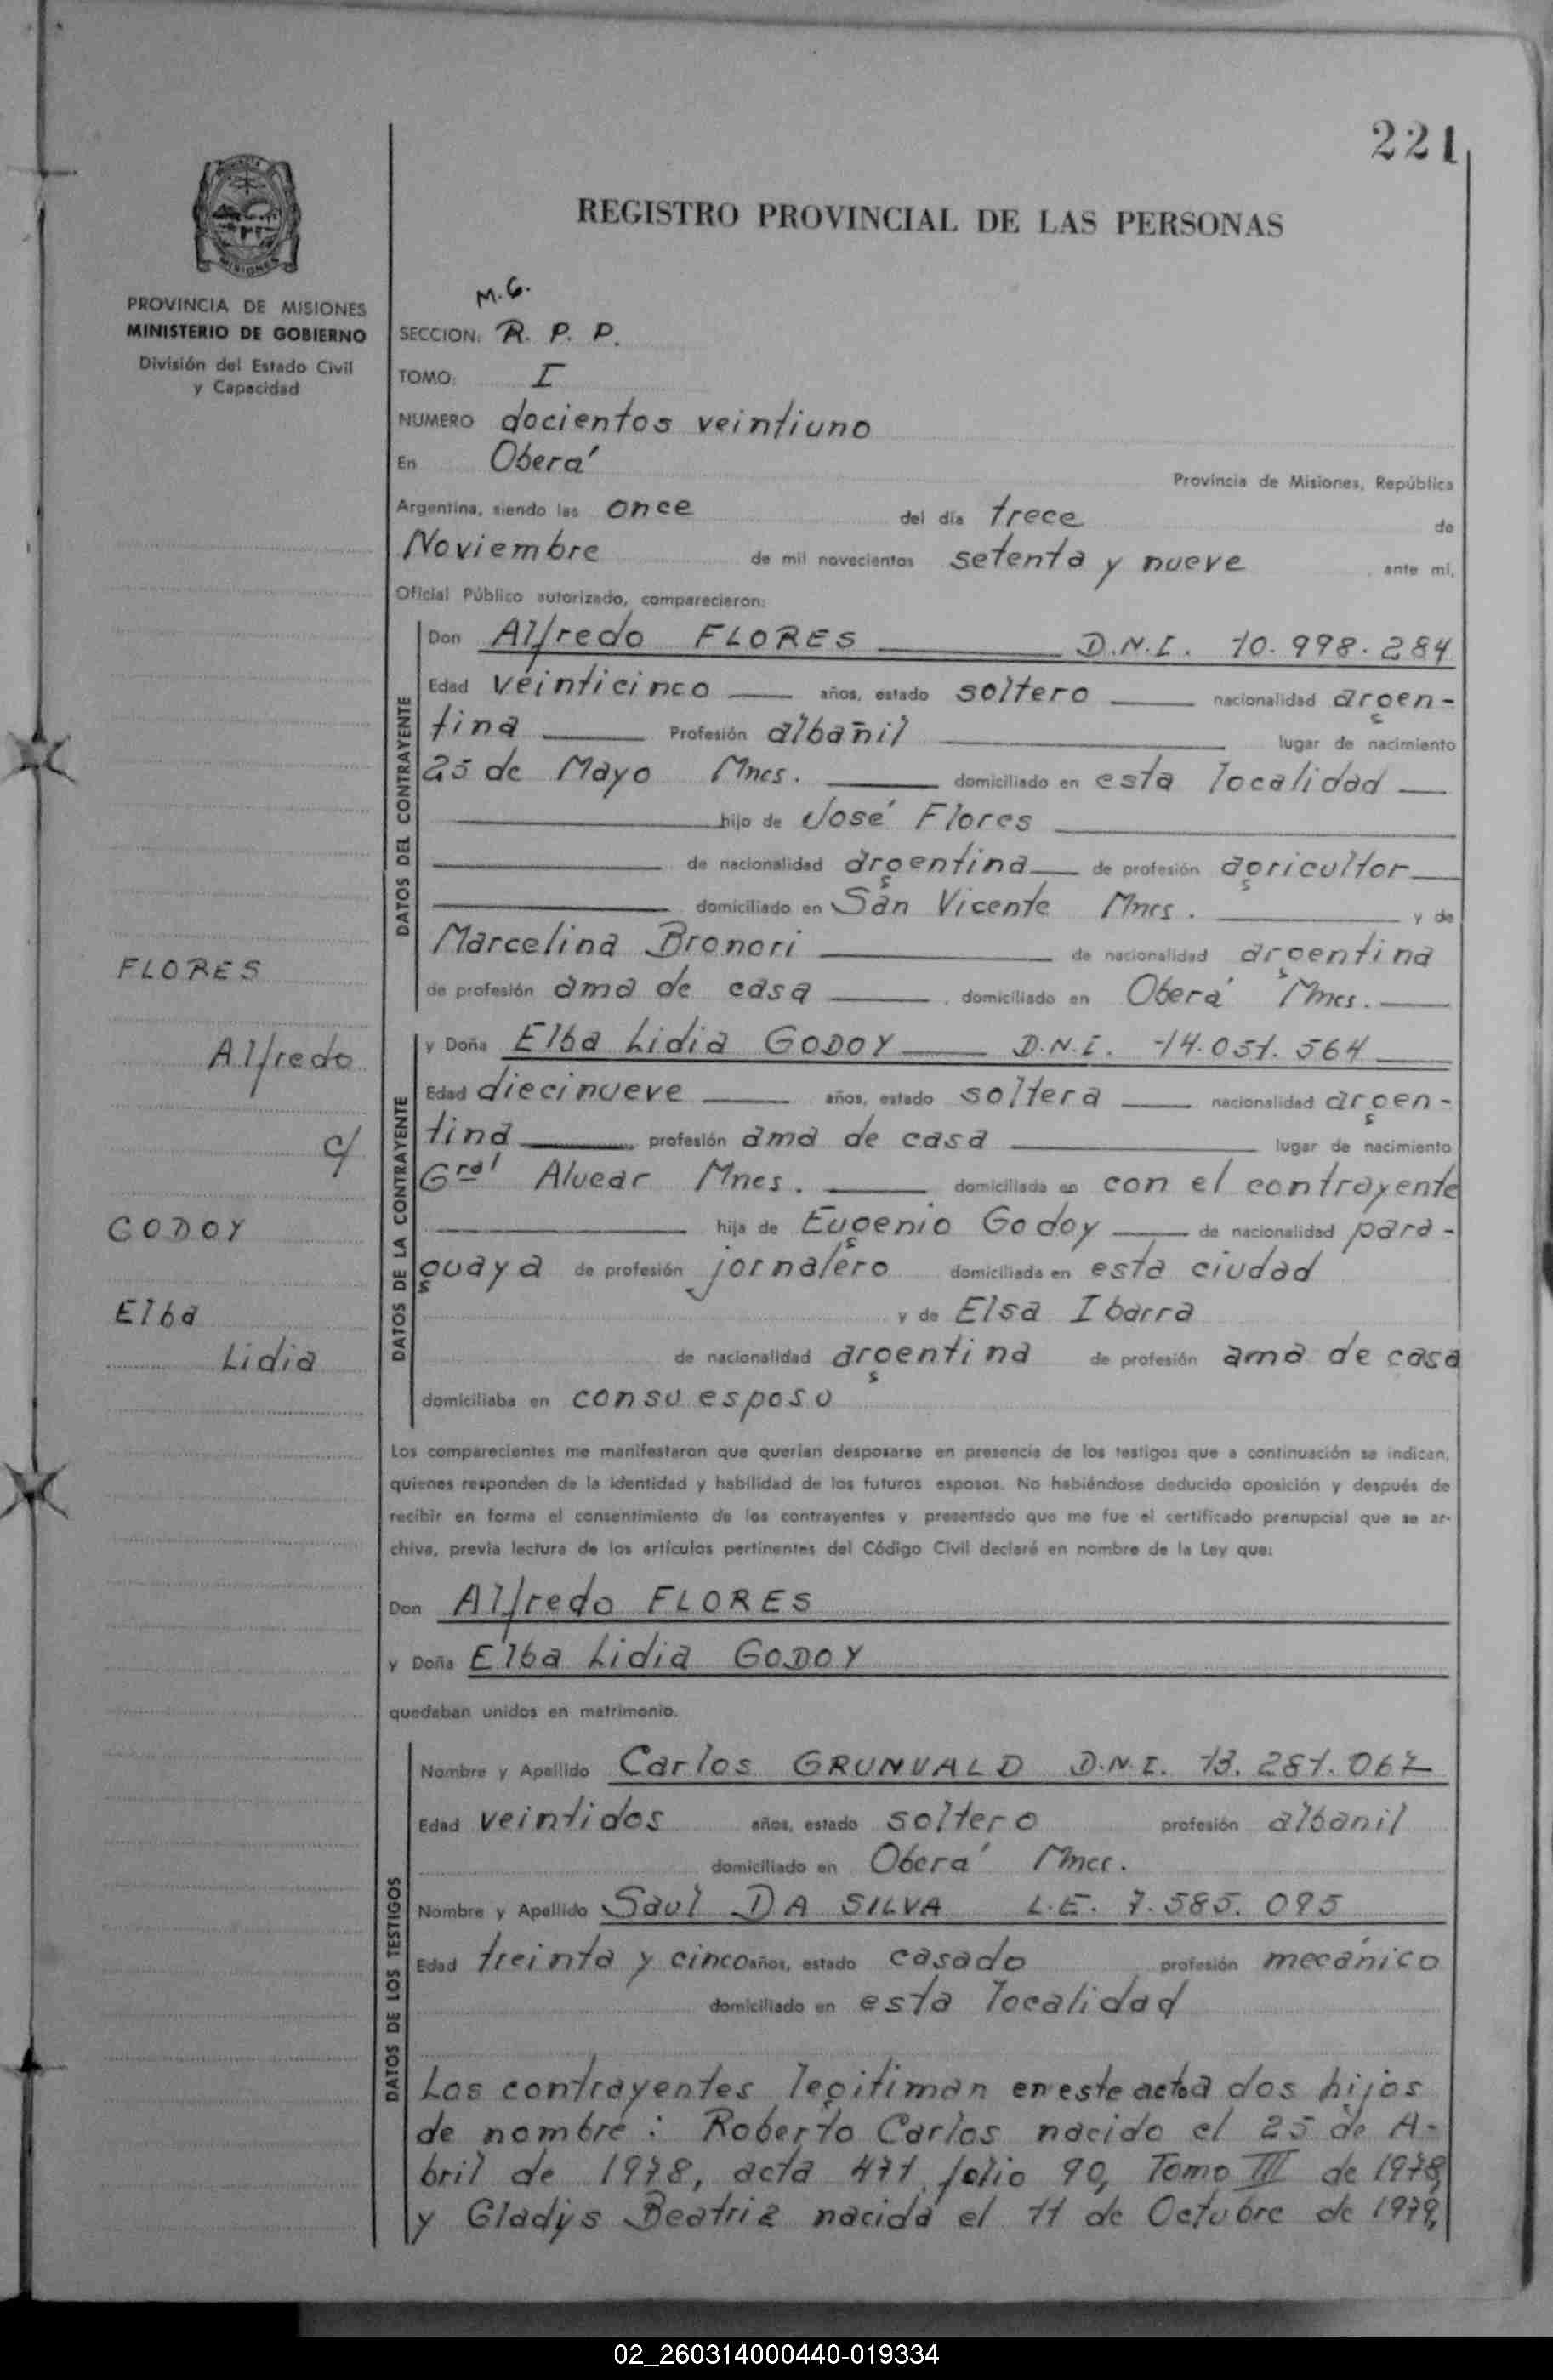 221
REGISTRO PROVINCIAL DE LAS PERSONAS
MISIONES
PROVINCIA DE MISIONES
MINISTERIO DE GOBIERNO
División del Estado Civil
y Capacidad
M. G.
SECCION: R. P. P.
TOMO: I
NUMERO docientos veintiuno
En Oberá Provincia de Misiones, República
Argentina, siendo las once del día trece de
Noviembre de mil novecientos setenta y nueve ante mí,
Oficial Público autorizado, comparecieron:
DATOS DEL CONTRAYENTE
Don Alfredo FLORES D.N.I. 10.998.284
Edad veinticinco años, estado soltero nacionalidad argen-
tina Profesión albañil lugar de nacimiento
25 de Mayo Mnes. domiciliado en esta localidad
hijo de José Flores
de nacionalidad argentina de profesión agricultor
domiciliado en San Vicente Mnes. y de
Marcelina Bronori de nacionalidad argentina
de profesión ama de casa domiciliado en Oberá Mnes.
FLORES
Alfredo
c/
GODOY
Elba
Lidia
DATOS DE LA CONTRAYENTE
y Doña Elba Lidia GODOY D.N.I. 14.051.564
Edad diecinueve años, estado soltera nacionalidad argen-
tina profesión ama de casa lugar de nacimiento
Gral Alvear Mnes. domiciliada en con el contrayente
hija de Eugenio Godoy de nacionalidad para-
guaya de profesión jornalero domiciliada en esta ciudad
y de Elsa Ibarra
de nacionalidad argentina de profesión ama de casa
domiciliaba en con su esposo
Los comparecientes me manifestaron que querían desposarse en presencia de los testigos que a continuación se indican,
quienes responden de la identidad y habilidad de los futuros esposos. No habiéndose deducido oposición y después de
recibir en forma el consentimiento de los contrayentes y presentado que me fue el certificado prenupcial que se ar-
chiva, previa lectura de los artículos pertinentes del Código Civil declaré en nombre de la Ley que:
Don Alfredo FLORES
y Doña Elba Lidia GODOY
quedaban unidos en matrimonio.
DATOS DE LOS TESTIGOS
Nombre y Apellido Carlos GRUNVALD D.N.I. 13.281.067
Edad veintidos años, estado soltero profesión albanil
domiciliado en Oberá Mnes.
Nombre y Apellido Saul DA SILVA L.E. 7.585.095
Edad treinta y cinco años, estado casado profesión mecánico
domiciliado en esta localidad
Los contrayentes legitiman en este acto a dos hijos
de nombre: Roberto Carlos nacido el 25 de A-
bril de 1978, acta 471 folio 90, Tomo III de 1978,
y Gladys Beatriz nacida el 11 de Octubre de 1979,
02_260314000440-019334